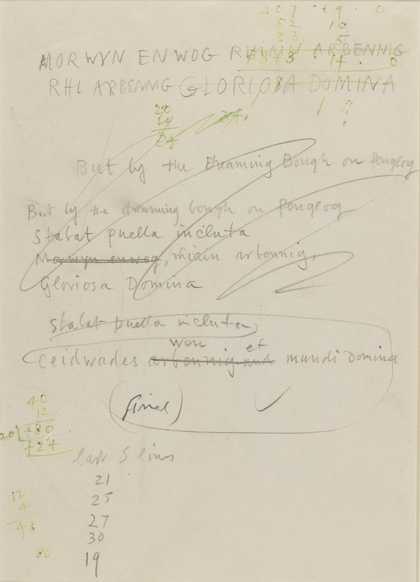 MORWYN ENWOG RHIAIN ARBENNIG
RHI ARBENNIG GLORIOSA DOMINA
1 ?
But by the dreaming Bough on Penglog
But by the dreaming bough on Penglog
Stabat puella incluta
Morwyn enwog, rhiain arbennig,
Gloriosa Domina
Stabat puella incluta,
wou et
Ceidwades arbennig and mundi Domina
(final) ✓
last 5 lines
21
25
27
30
19